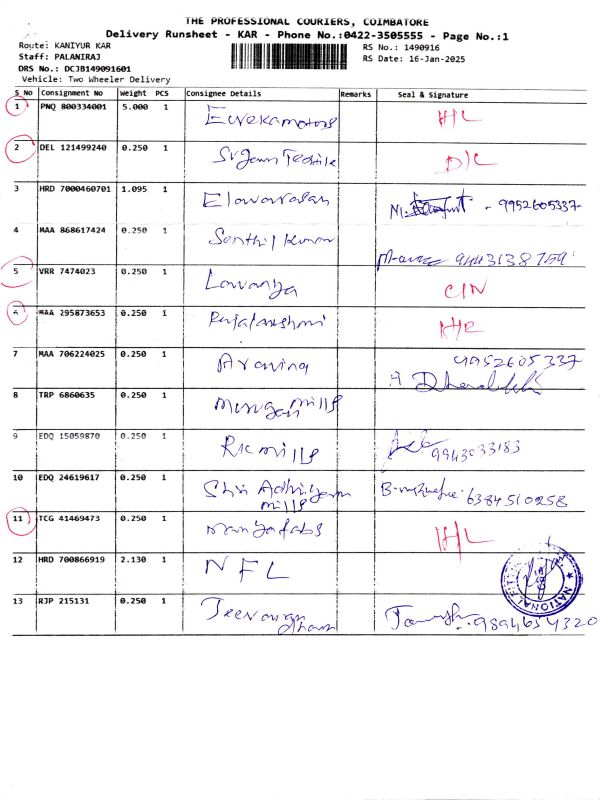 THE PROFESSIONAL COURIERS, COIMBATORE
Delivery Runsheet - KAR - Phone No.:0422-3505555 - Page No.:1
Route: KANIYUR KAR RS No.: 1490916
Staff: PALANIRAJ RS Date: 16-Jan-2025
DRS No.: DCJB149091601
Vehicle: Two Wheeler Delivery
S_No Consignment No Weight PCS Consignee Details Remarks Seal & Signature
1 PNQ 800334001 5.000 1 Eurekamotors
2 DEL 121499240 0.250 1 Textile D/L
3 HRD 7000460701 1.095 1 Elavarasan - 9952605337
4 MAA 868617424 0.250 1 Senthil Kumar 9443138759
5 VRR 7474023 0.250 1 Lavanya C/N
6 MAA 295873653 0.250 1 Rajalakshmi
7 MAA 706224025 0.250 1 Aravind 9952605337
8 TRP 6860635 0.250 1 Murugan mills
9 EDQ 15059870 0.250 1 RK mills 9943033183
10 EDQ 24619617 0.250 1 Shri mills 6384510258
11 TCG 41469473 0.250 1 IHL
12 HRD 700866919 2.130 1 NFL NATIONAL
13 RJP 215131 0.250 1 9894654320